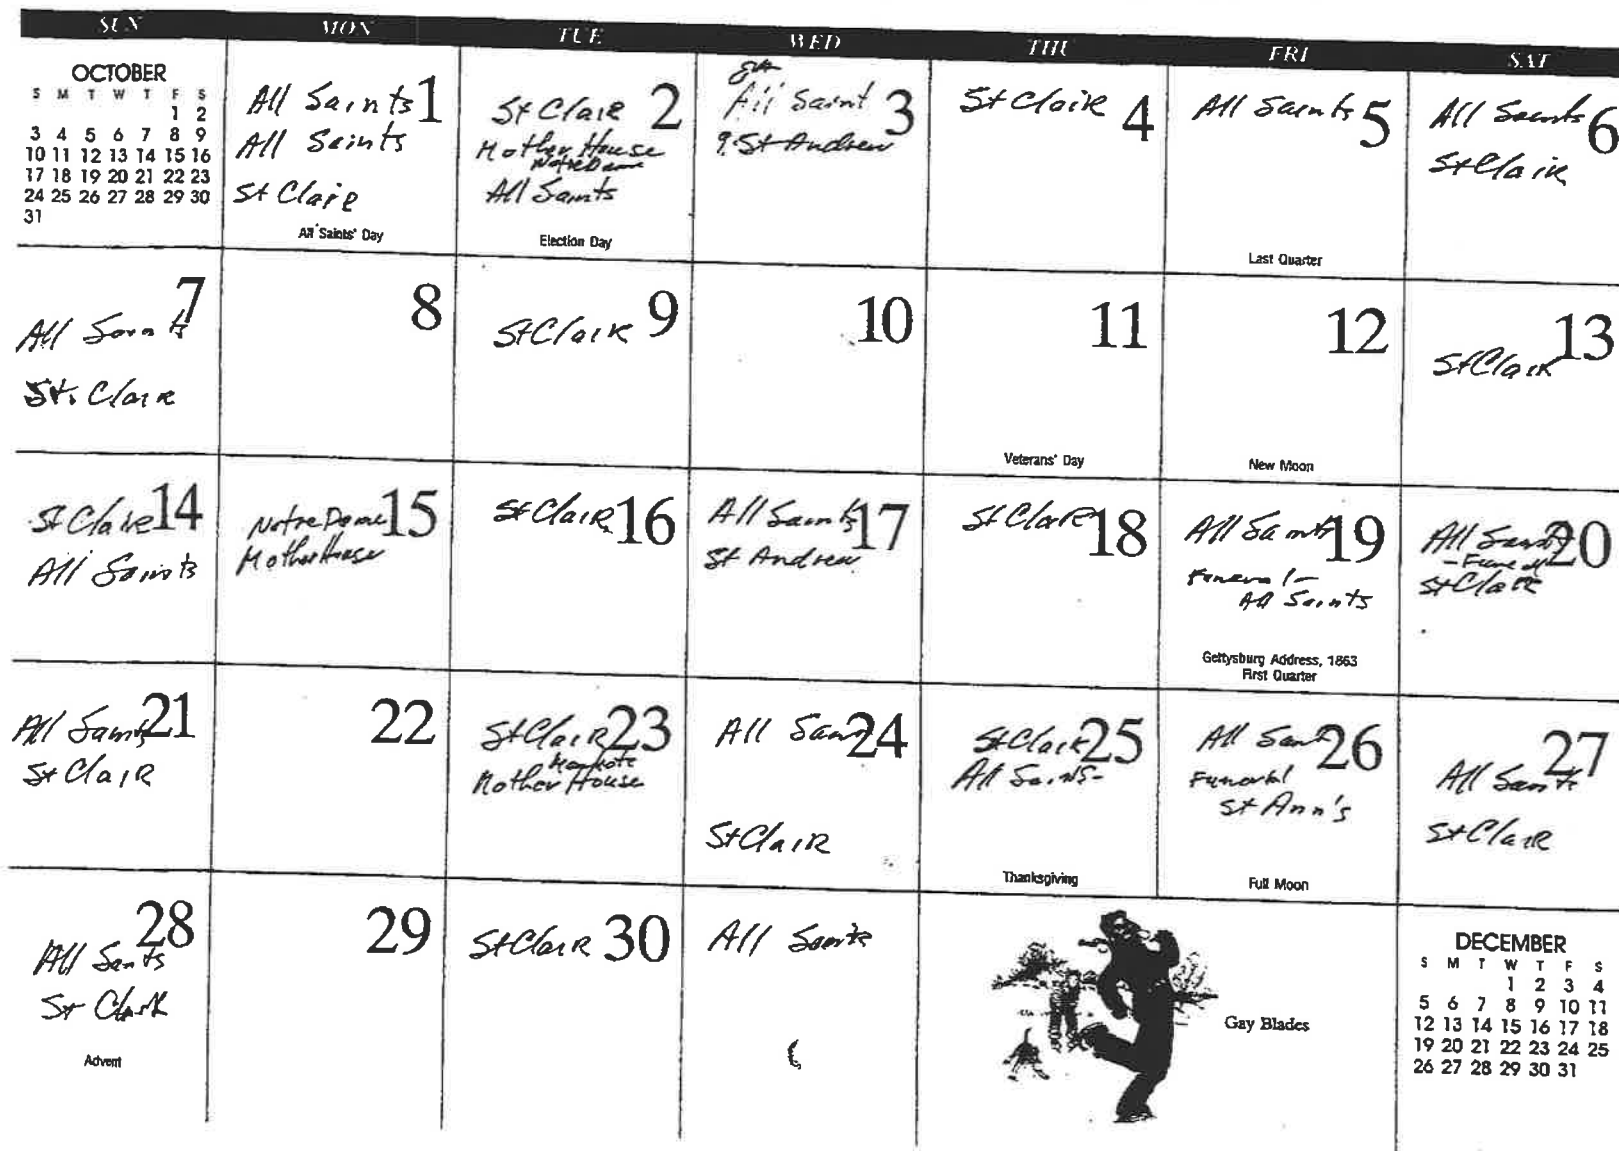 SUN MON TUE WED THU FRI SAT
OCTOBER
S M T W T F S
1 2
3 4 5 6 7 8 9
10 11 12 13 14 15 16
17 18 19 20 21 22 23
24 25 26 27 28 29 30
31
All Saints 1
All Saints
St Clair
All Saints' Day
St Clair 2
Mother House
Notre Dame
All Saints
Election Day
8
All Saint 3
9. St Andrew
St Clair 4
All Saints 5
Last Quarter
All Saints 6
St Clair
7
All Saints
St. Clair
8
St Clair 9
10
11
Veterans' Day
12
New Moon
13
St Clair
St Claire 14
All Saints
Notre Dame 15
Mother House
St Clair 16
All Saints 17
St Andrew
St Clair 18
All Saints 19
Funeral -
All Saints
Gettysburg Address, 1863
First Quarter
All Saints 20
- Funeral
St Clair
All Saints 21
St Clair
22
St Clair 23
Mother House
All Saints 24
St Clair
St Clair 25
All Saints -
Thanksgiving
All Saint 26
Funeral
St Ann's
Full Moon
27
All Saints
St Clair
28
All Saints
St Clair
Advent
29
St Clair 30
All Saints
Gay Blades
DECEMBER
S M T W T F S
1 2 3 4
5 6 7 8 9 10 11
12 13 14 15 16 17 18
19 20 21 22 23 24 25
26 27 28 29 30 31